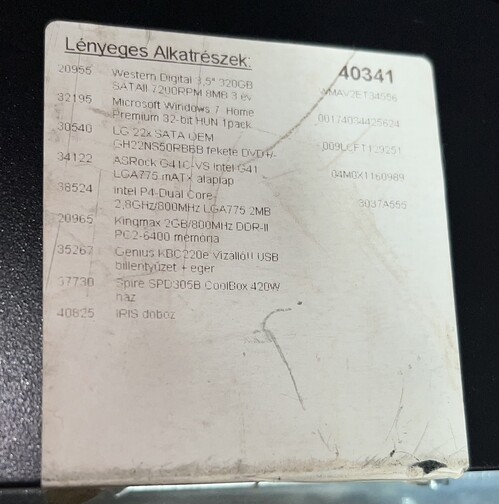 Lényeges Alkatrészek:
40341
20955 Western Digital 3,5" 320GB WMAV2ET34556
SATAII 7200RPM 8MB 3 év
32195 Microsoft Windows 7 Home 00174034425624
Premium 32-bit HUN 1pack
30540 LG 22x SATA OEM
GH22NS50RBBB fekete DVD+/-
34122 ASRock G41C-VS Intel G41 04M0X1160989
LGA775 mATX alaplap
38524 Intel P4-Dual Core 3037A555
2,8GHz/800MHz LGA775 2MB
20965 Kingmax 2GB/800MHz DDR-II
PC2-6400 memória
35267 Genius KBC220e vízálló!! USB
billentyűzet + egér
37730 Spire SPD305B CoolBox 420W
ház
40825 IRIS doboz